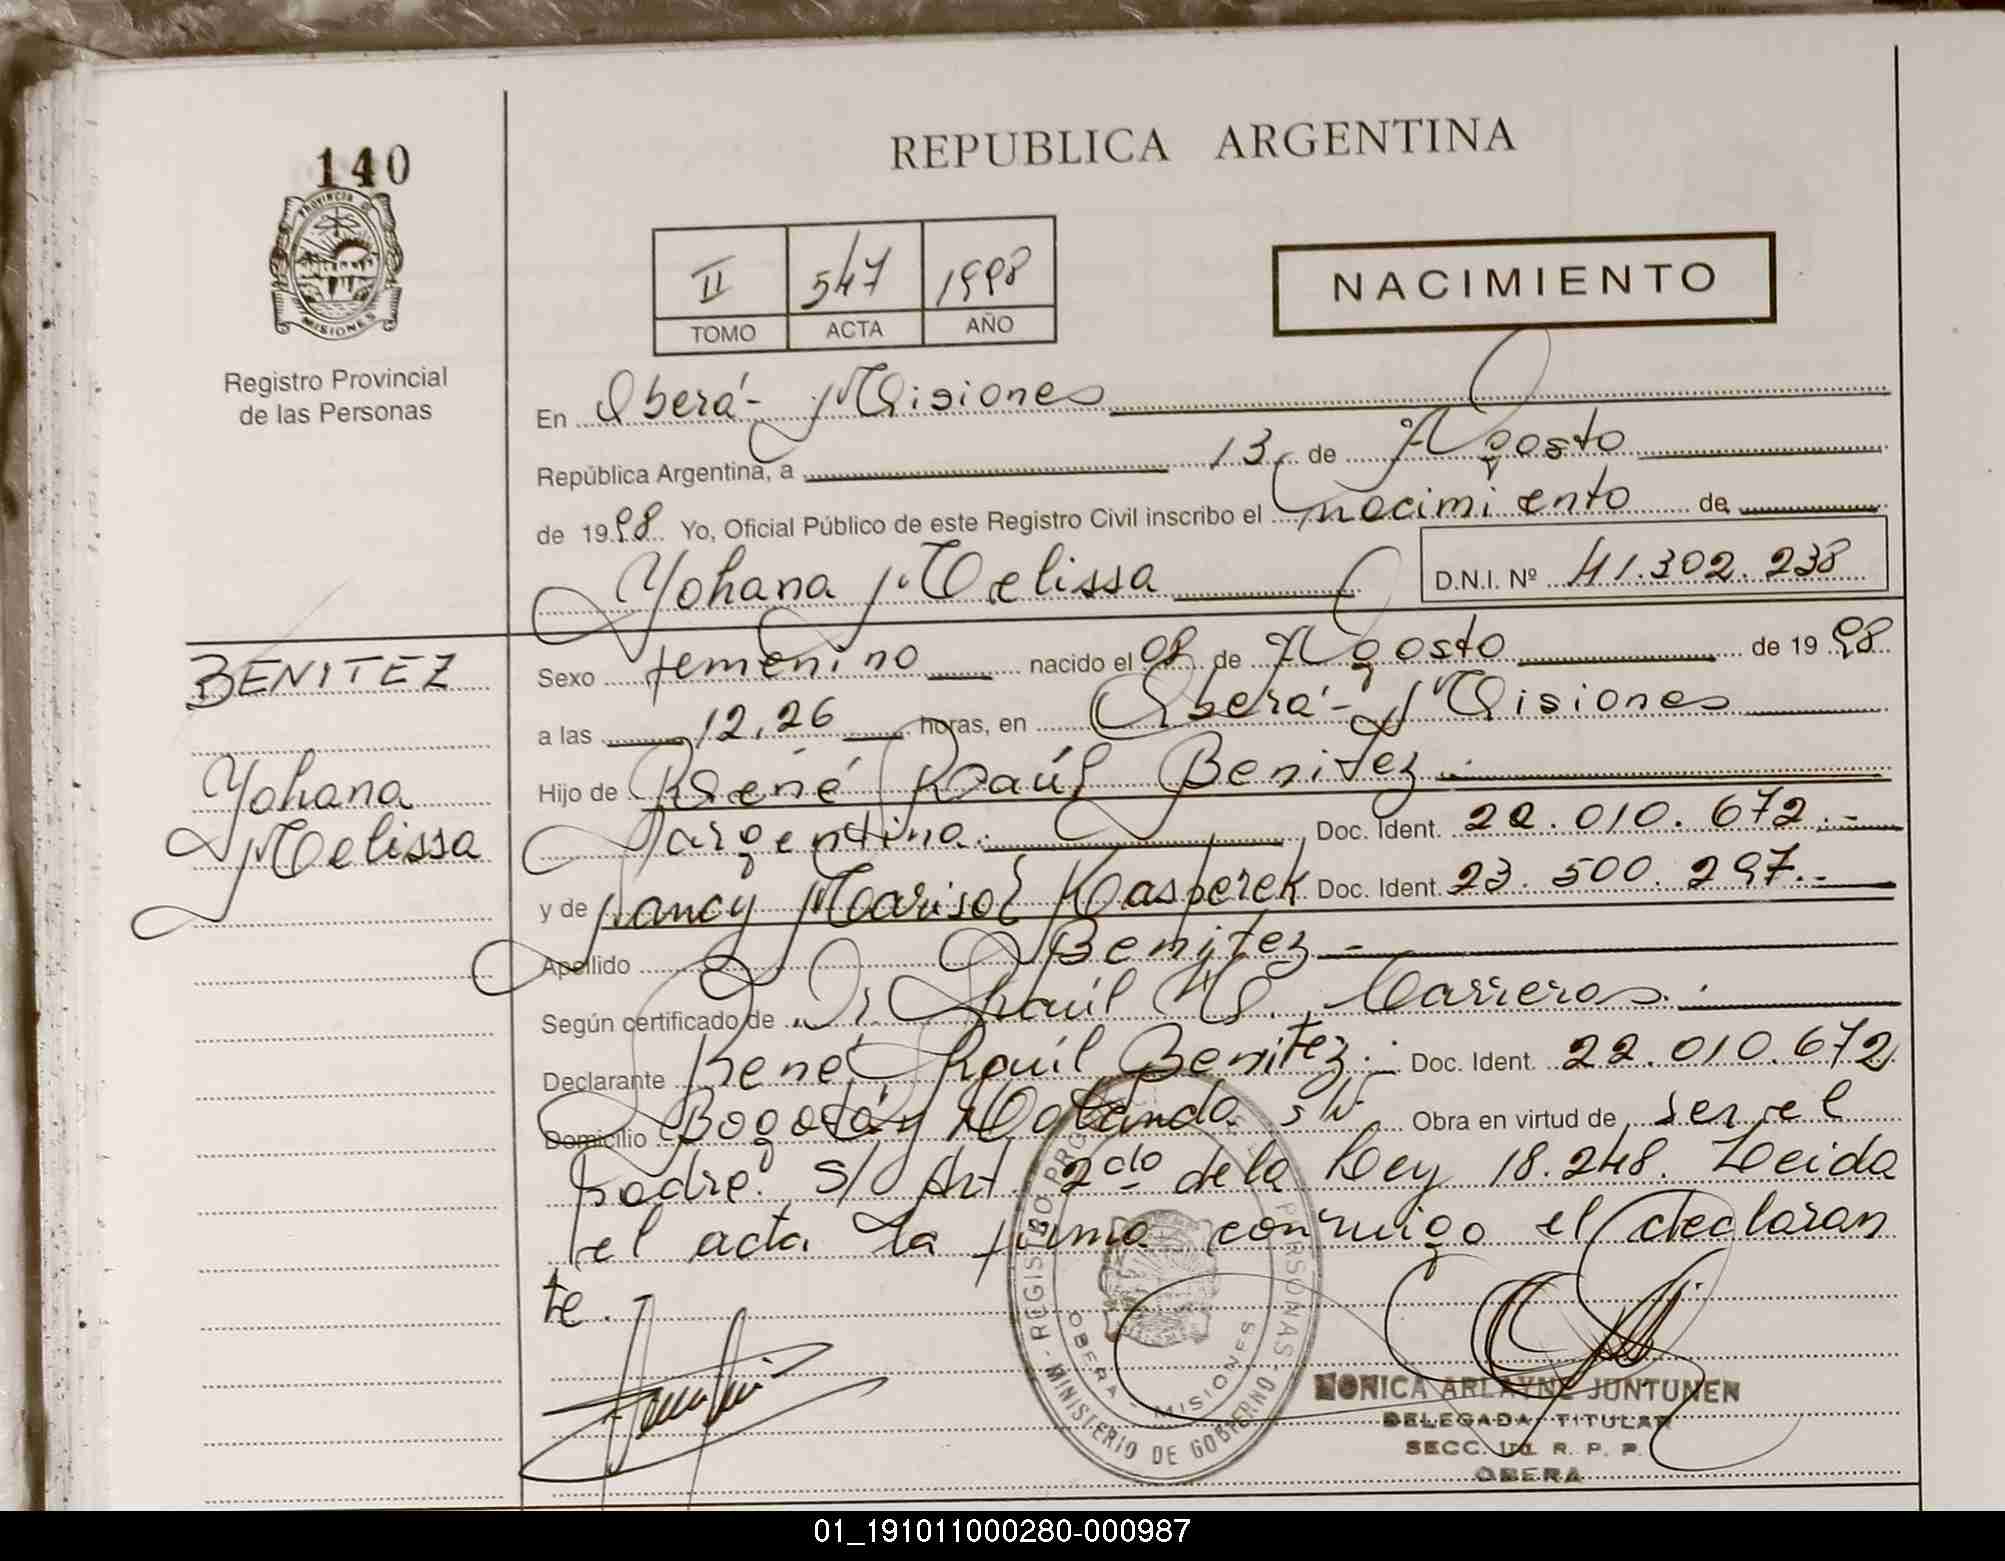 140
PROVINCIA DE
MISIONES
Registro Provincial
de las Personas
REPUBLICA ARGENTINA
II 547 1998
TOMO ACTA AÑO
NACIMIENTO
En Oberá - Misiones
República Argentina, a 13 de Agosto
de 1998 Yo, Oficial Público de este Registro Civil inscribo el nacimiento de
Yohana Melissa D.N.I. Nº 41.302.238
BENITEZ
Yohana
Melissa
Sexo femenino nacido el 08 de Agosto de 1998
a las 12,26 horas, en Oberá - Misiones
Hijo de René Raúl Benitez.
argentina. Doc. Ident. 22.010.672.-
y de Nancy Marisol Kasperek Doc. Ident. 23.500.297.-
Apellido Benitez -
Según certificado de Dr. Raúl W. Carreras.
Declarante René Raúl Benitez. Doc. Ident. 22.010.672
Domicilio Bogotá y Holanda s/n Obra en virtud de ser el
padre. S/ Art 2do de la Ley 18.248. Leida
el acta la firma conmigo el declaran
te.
REGISTRO PROVINCIAL DE LAS PERSONAS - MINISTERIO DE GOBIERNO -
OBERA - MISIONES
MONICA ARLAYNE JUNTUNEN
DELEGADA TITULAR
SECC. 1ra. R. P. P.
OBERA
01_191011000280-000987